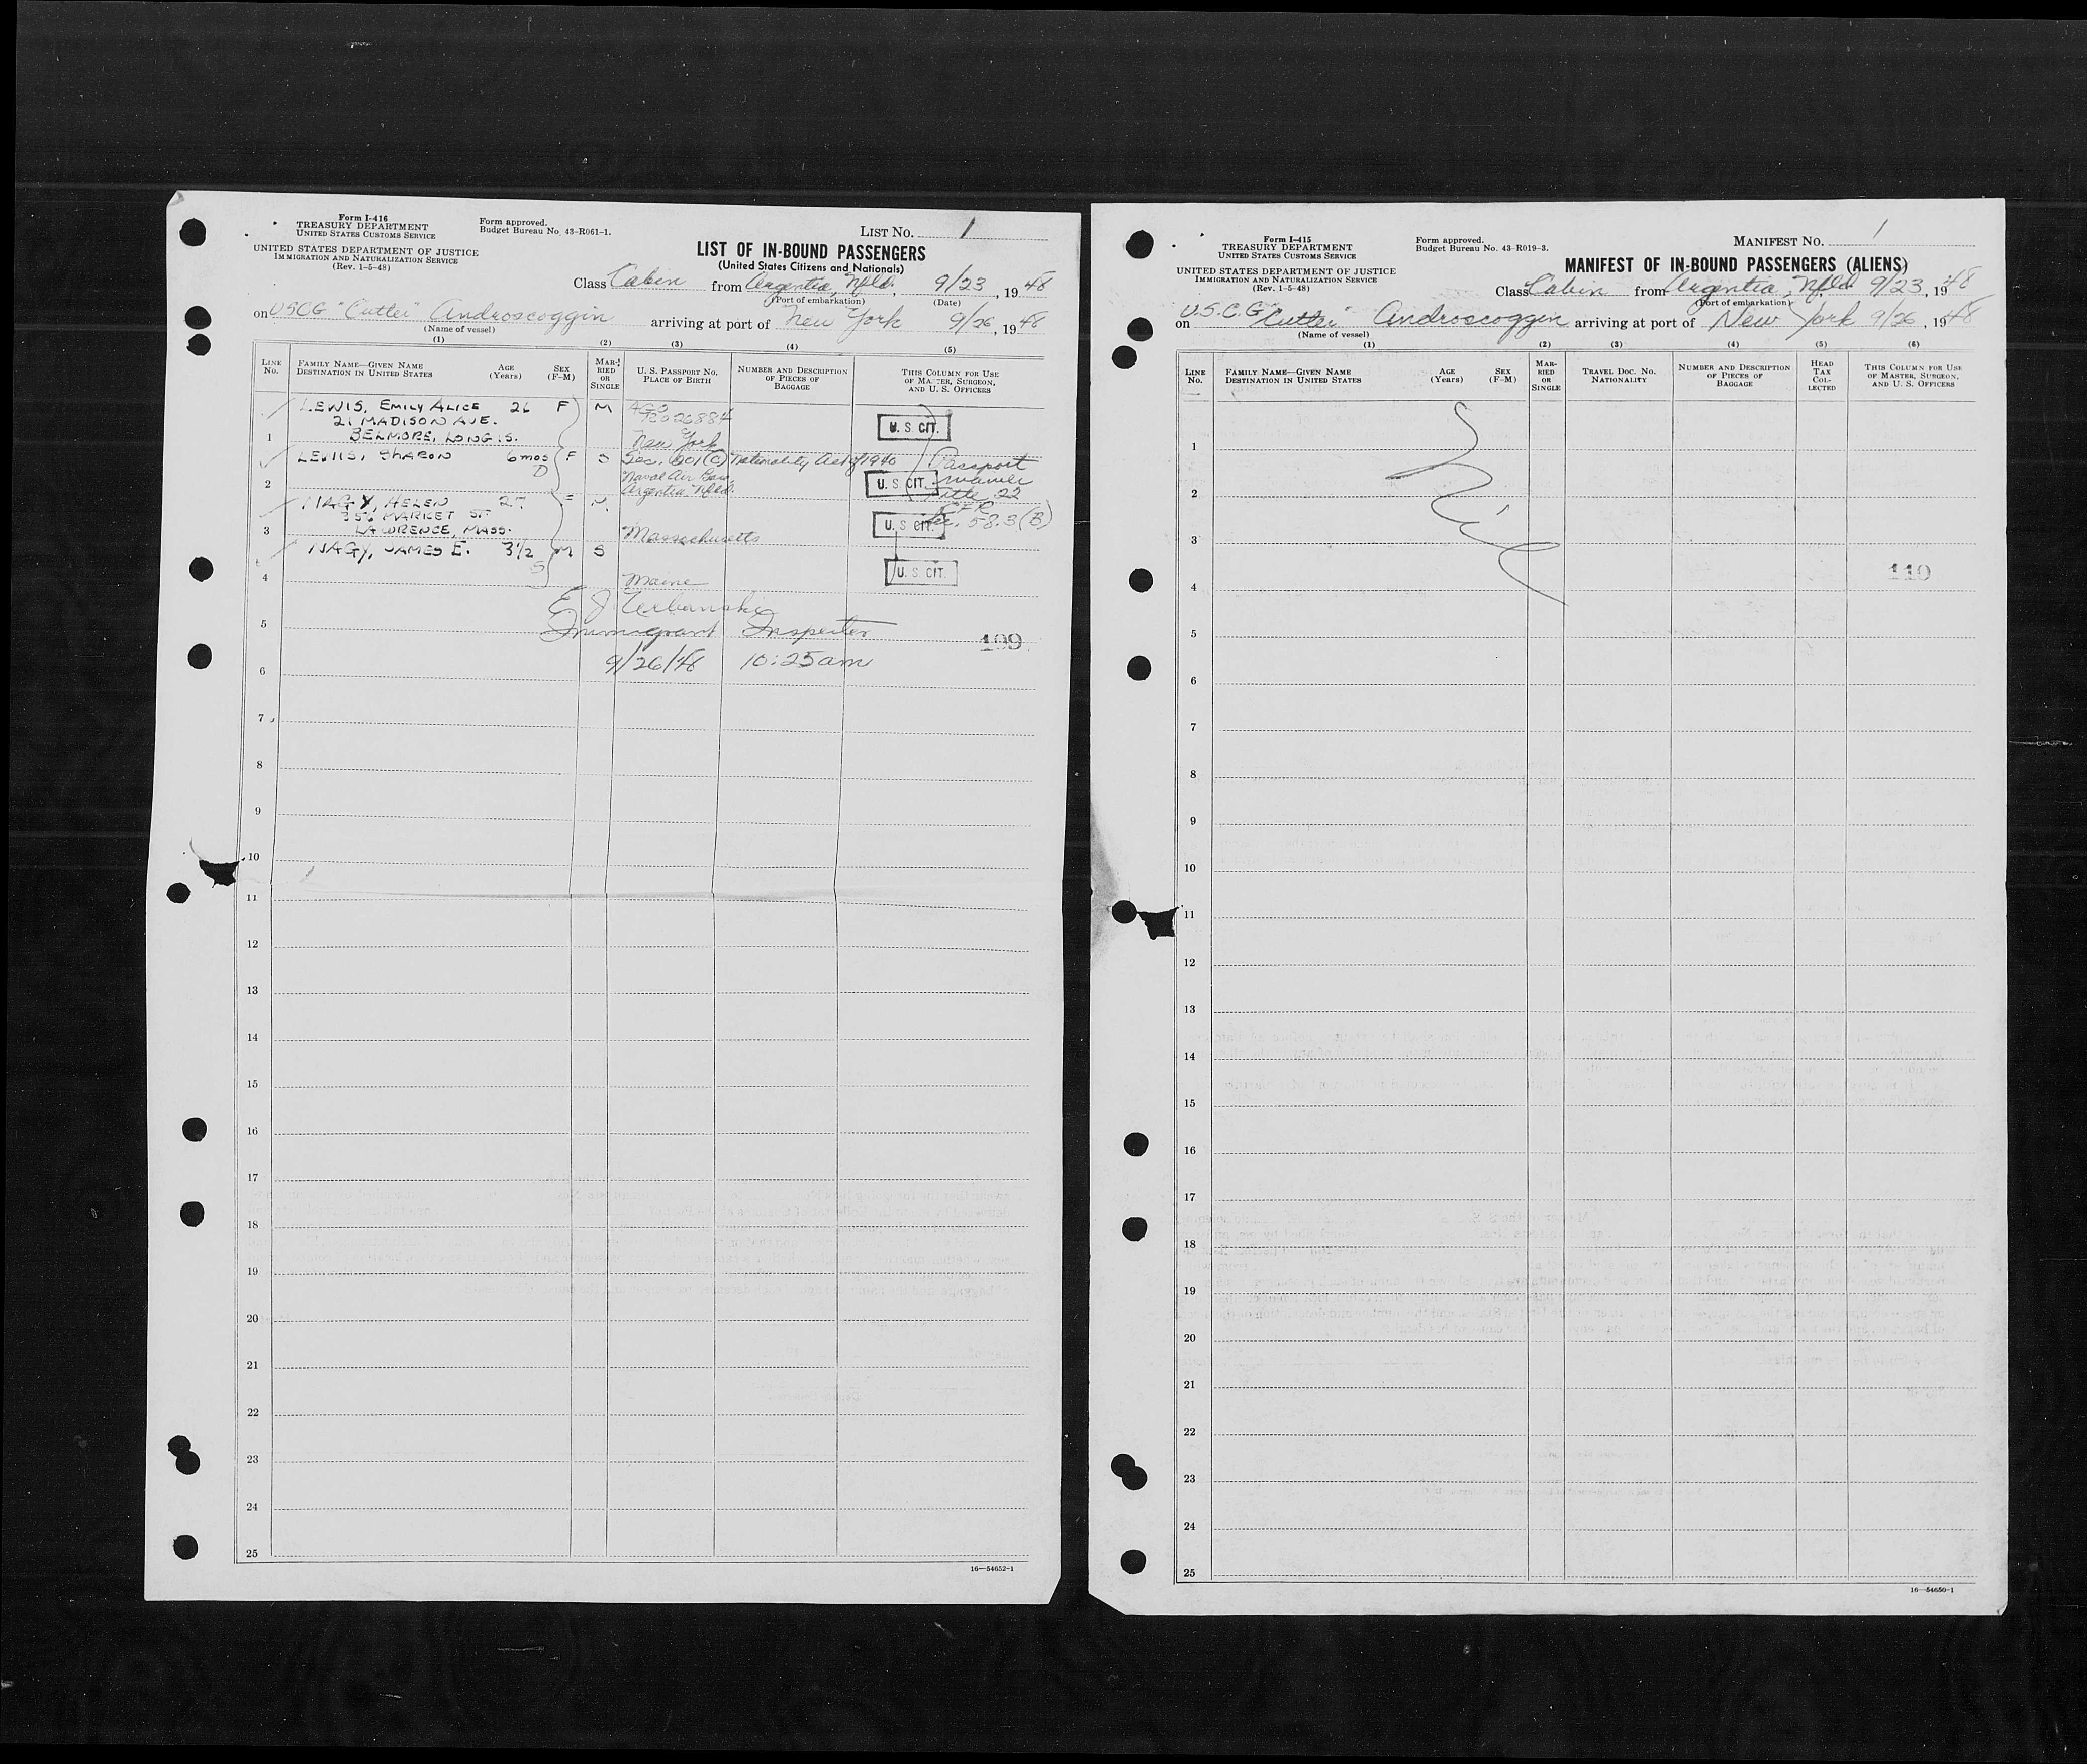 Form I-416
TREASURY DEPARTMENT
UNITED STATES CUSTOMS SERVICE
UNITED STATES DEPARTMENT OF JUSTICE
IMMIGRATION AND NATURALIZATION SERVICE
(Rev. 1-5-48)
Form approved.
Budget Bureau No. 43-R061-1.
LIST No. 1
LIST OF IN-BOUND PASSENGERS
(United States Citizens and Nationals)
Class Cabin from Argentia, Nfld., 9/23, 1948
(Port of embarkation) (Date)
on USCG "Cutter" Androscoggin arriving at port of New York 9/26, 1948
(Name of vessel)
(1) (2) (3) (4) (5)
LINE No. FAMILY NAME—GIVEN NAME DESTINATION IN UNITED STATES AGE (Years) SEX (F-M) MARRIED OR SINGLE U. S. PASSPORT NO. PLACE OF BIRTH NUMBER AND DESCRIPTION OF PIECES OF BAGGAGE THIS COLUMN FOR USE OF MASTER, SURGEON, AND U. S. OFFICERS
LEWIS, EMILY ALICE 26 F M AGO
21 MADISON AVE. U. S. CIT.
1 BELMORE, LONG IS. New York
LEWIS, SHARON 6 mos F S Sec. 201(C) Nationality Act of 1940 Passport
D Naval Air Base
2 Argentia Nfld. U. S. CIT. Title 22
NAGY, HELEN 27 F M CFR
356 MARKET ST. U. S. CIT. Sec. 58.3(B)
LAWRENCE, MASS.
3 Massachusetts
NAGY, JAMES E. 3½ M S
S U. S. CIT.
4 Maine
E J Urbanski
5 Immigrant Inspector 109
6 9/26/48 10:25am
7
8
9
10
11
12
13
14
15
16
17
18
19
20
21
22
23
24
25
16—54652-1
Form I-415
TREASURY DEPARTMENT
UNITED STATES CUSTOMS SERVICE
UNITED STATES DEPARTMENT OF JUSTICE
IMMIGRATION AND NATURALIZATION SERVICE
(Rev. 1-5-48)
Form approved.
Budget Bureau No. 43-R019-3.
MANIFEST No. 1
MANIFEST OF IN-BOUND PASSENGERS (ALIENS)
Class Cabin from Argentia, Nfld 9/23, 1948
(Port of embarkation)
on U.S.C.G "Cutter" Androscoggin arriving at port of New York 9/26, 1948
(Name of vessel)
(1) (2) (3) (4) (5) (6)
LINE No. FAMILY NAME—GIVEN NAME DESTINATION IN UNITED STATES AGE (Years) SEX (F-M) MARRIED OR SINGLE TRAVEL DOC. NO. NATIONALITY NUMBER AND DESCRIPTION OF PIECES OF BAGGAGE HEAD TAX COLLECTED THIS COLUMN FOR USE OF MASTER, SURGEON, AND U. S. OFFICERS
1
2
3
110
4
5
6
7
8
9
10
11
12
13
14
15
16
17
18
19
20
21
22
23
24
25
16—54650-1